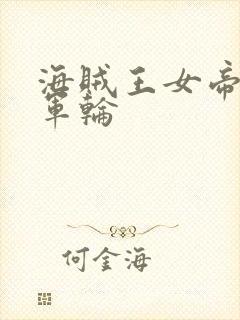 海賊王女帝
軍輪
何金海